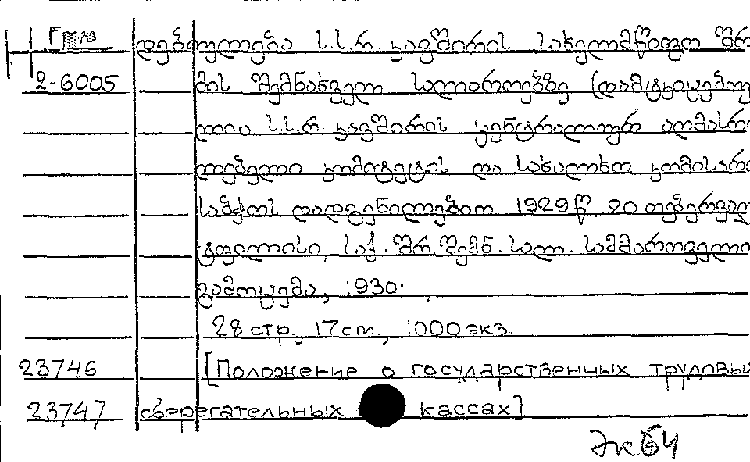 დებულება ს.ს.რ. კავშირის სახელმწიფო შრო
2-6005 მის შემნახველ სალაროებზე (დამტკიცებულ
ლია ს.ს.რ. კავშირის ცენტრალურ აღმასრუ
ლებელი კომიტეტის და სახალხო კომისართა
საბჭოს დადგენილებით 1929წ. 20 თებერვალ
ტფილისი, საქ. შრ. შემნ. სალ. სამმართველოს
გამოცემა, 1930.
28 стр, 17 см, 1000 экз.
23746 [Положение о государственных трудовых
23747 сберегательных кассах]